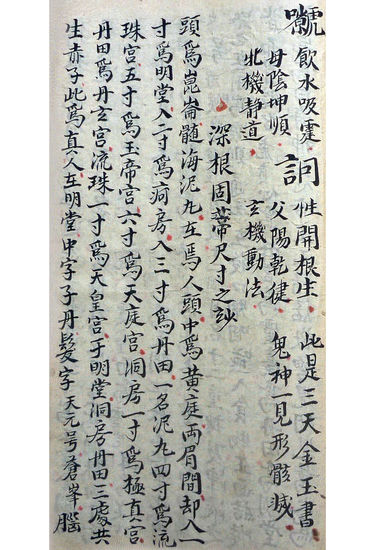 飲水吸霆 詞 性開根生 此是三天金玉書
母陰坤順 父陽乾健 鬼神一見形骸滅
北機静道 玄機動法
深根固蒂尺寸之訣
頭爲崑崙髓海泥丸在焉人頭中爲黄庭両眉間却入一
寸爲明堂入二寸爲洞房入三寸爲丹田一名泥丸四寸爲流
珠宮五寸爲玉帝宮六寸爲天庭宮洞房一寸爲極真宮
丹田爲丹玄宮流珠一寸爲天皇宮于明堂洞房丹田三處共
生赤子此爲真人在明堂中字子丹髮字天元号蒼峯腦